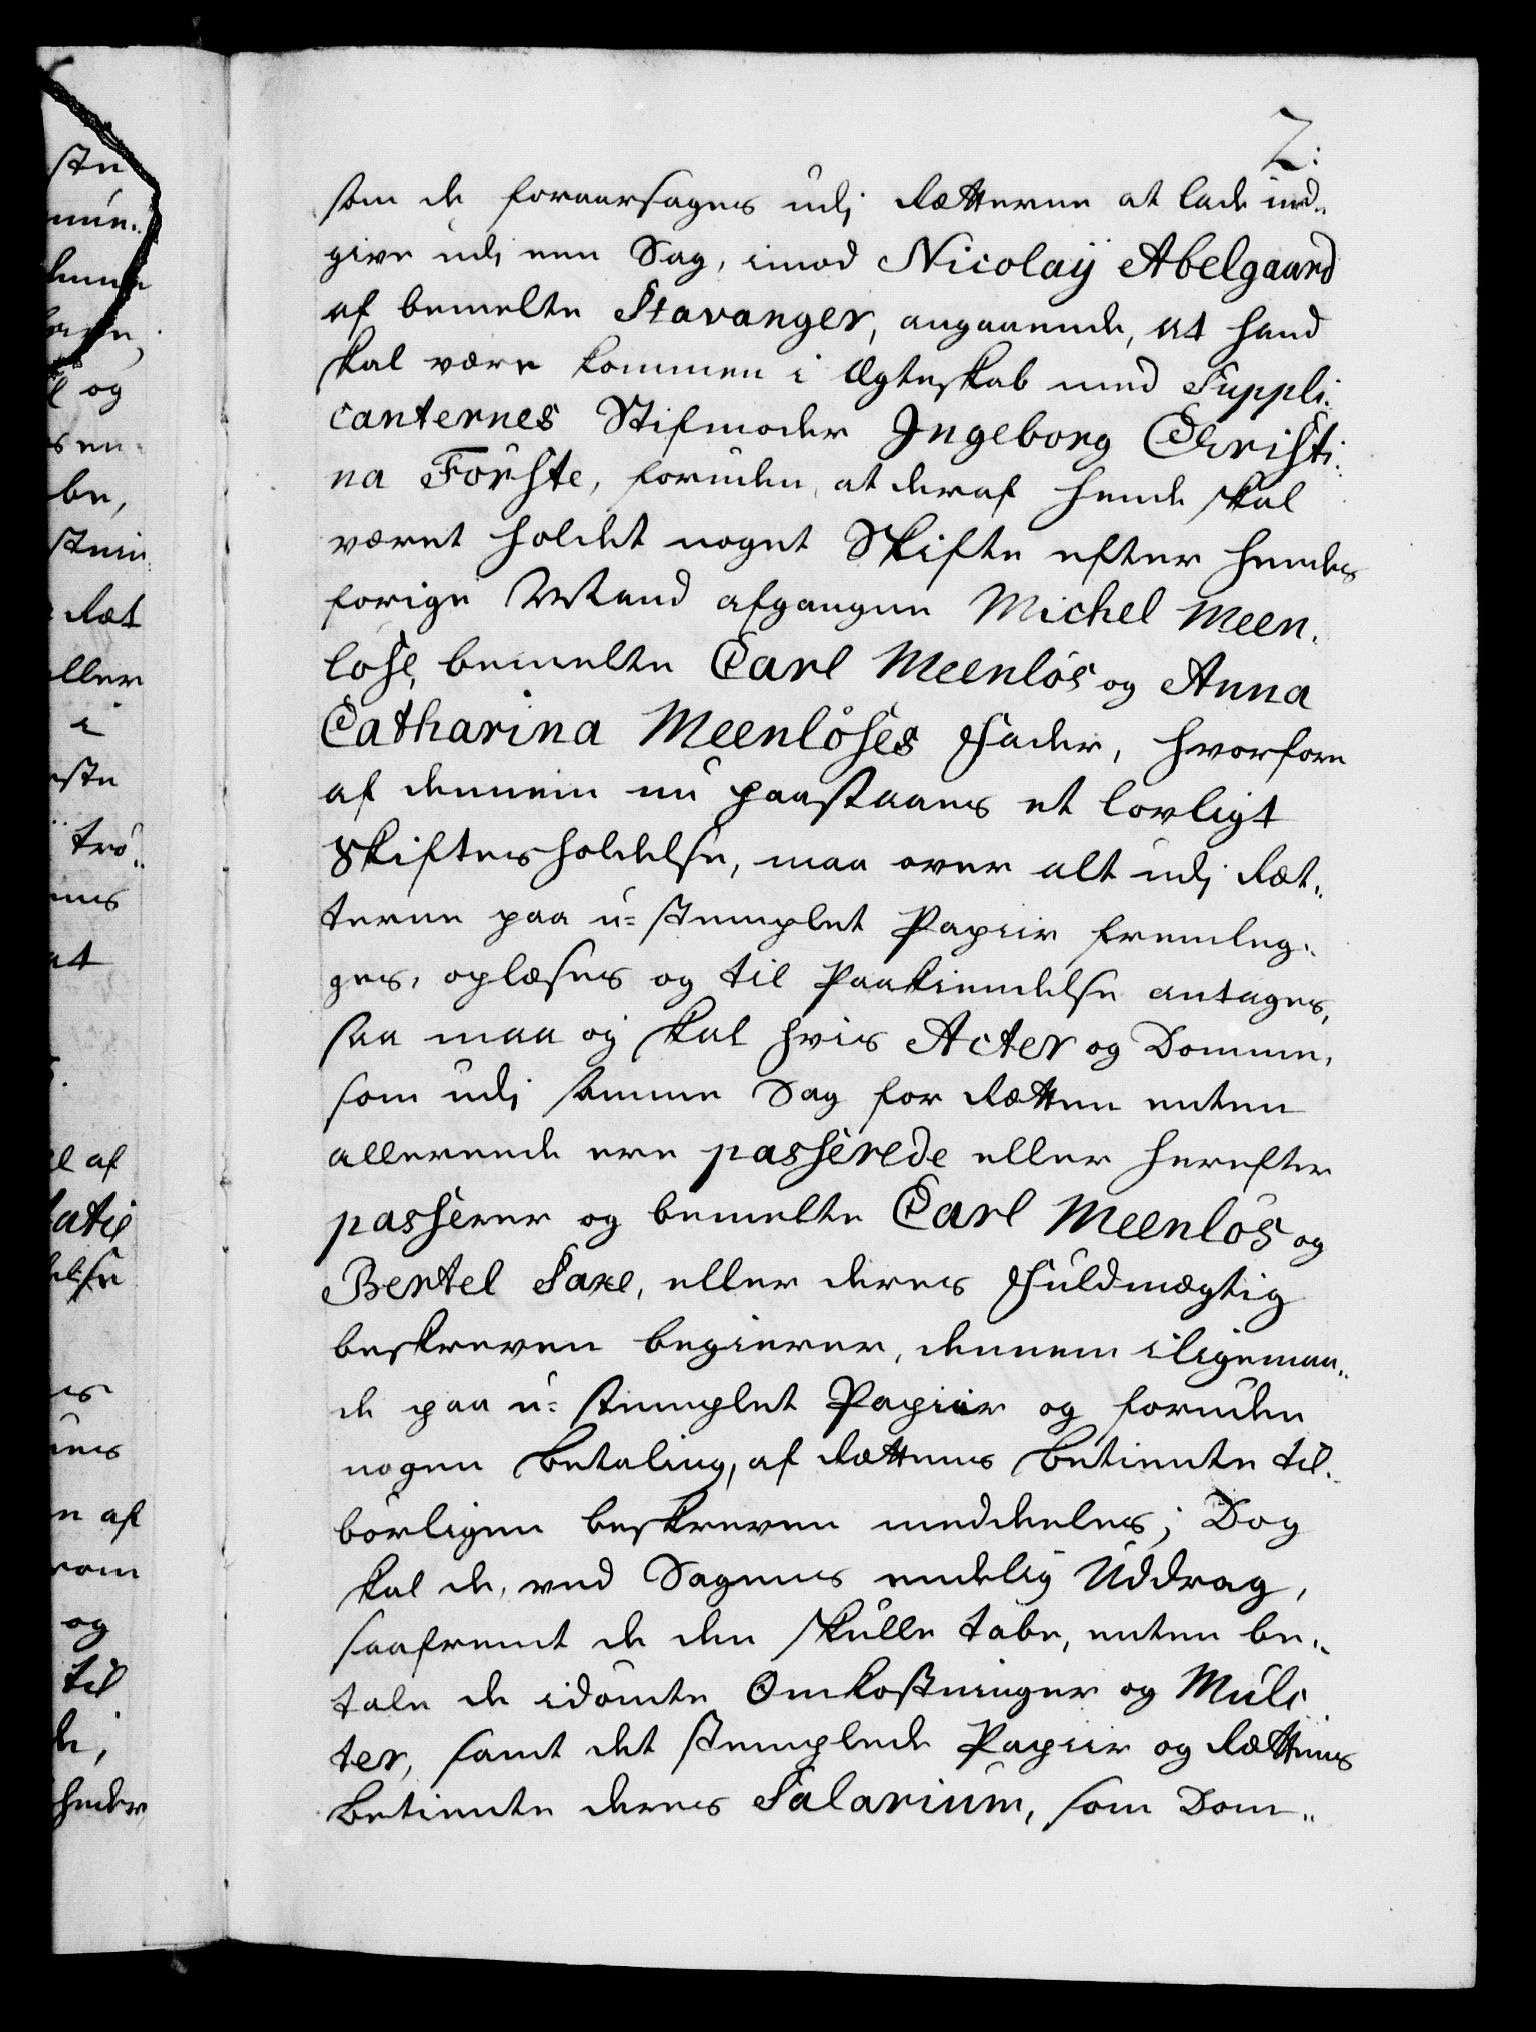 2:
som de foraarsages udj Rætterne at lade ind„
give udj een Sag, imod Nicolaÿ Abelgaard
af bemelte Stavanger, angaaende, at hand
skal være kommen i Ægteskab med Suppli„
canternes Stifmoder Ingeborg Christi„
na Förste, foruden, at deraf hende skal
været holdet noget Skifte efter hendes
forige Mand afgangne Michel Meen„
löse, bemelte Carl Meenlös og Anna
Catharina Meenlöses Fader, hvorfore
af dennem nu paastaaes et lovligt
Skiftes holdelse, maa over alt udj Ræt„
terne paa u-stemplet Papiir fremleg„
ges, oplæses og til Paakiendelse antages,
saa maa og skal hvis Acter og Domme,
som udj samme Sag for Rætten enten
allereede ere passerede eller herefter
passerer og bemelte Carl Meenlös og
Bertel Saxe, eller deres Fuldmægtig
beskreven begierer, dennem iligemaa„
de paa u-stemplet Papiir og foruden
nogen betaling, af Rættens betiente til„
börligen beskreven meddeeles; Dog
skal de, ved Sagens endelig Uddrag,
saafremt de den skulle tabe, enten be„
tale de idömte Omkostninger og Mulc
ter, samt det stemplede Papiir og Rættens
betiente deres Salarium, som Dom„